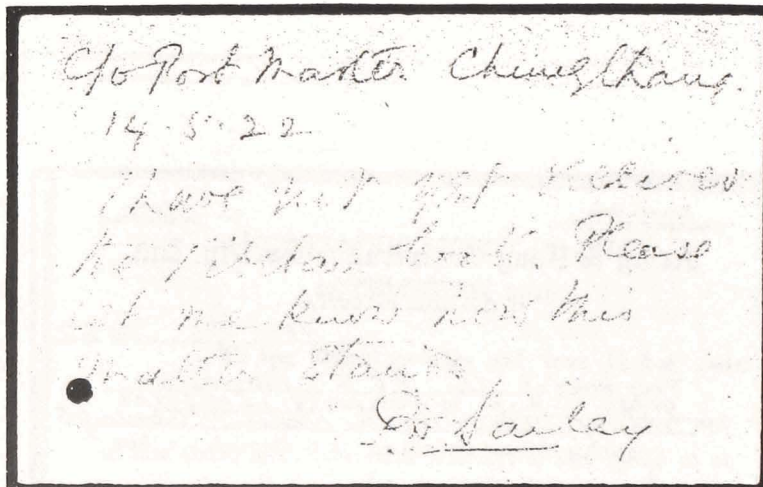 C/o Post Master Chungthang.
14.5.22
I have not yet received
the Tibetan book. Please
let me know how this
matter stands